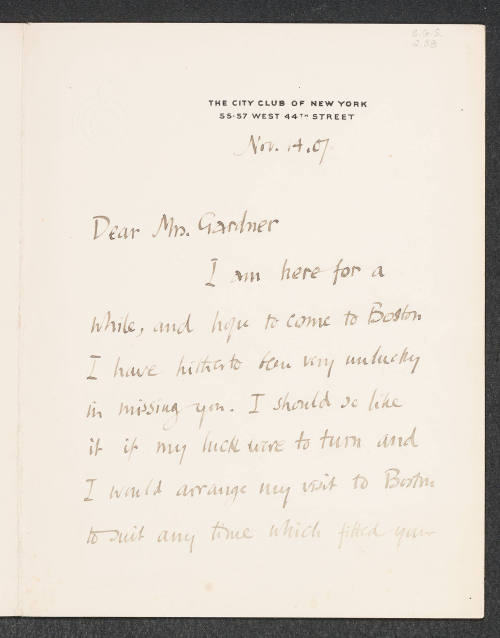 THE CITY CLUB OF NEW YORK
55-57 WEST 44TH STREET
Nov. 14. 07
Dear Mrs. Gardner
I am here for a
while, and hope to come to Boston
I have hitherto been very unlucky
in missing you. I should so like
it if my luck were to turn and
I would arrange my visit to Boston
to suit any time which fitted your